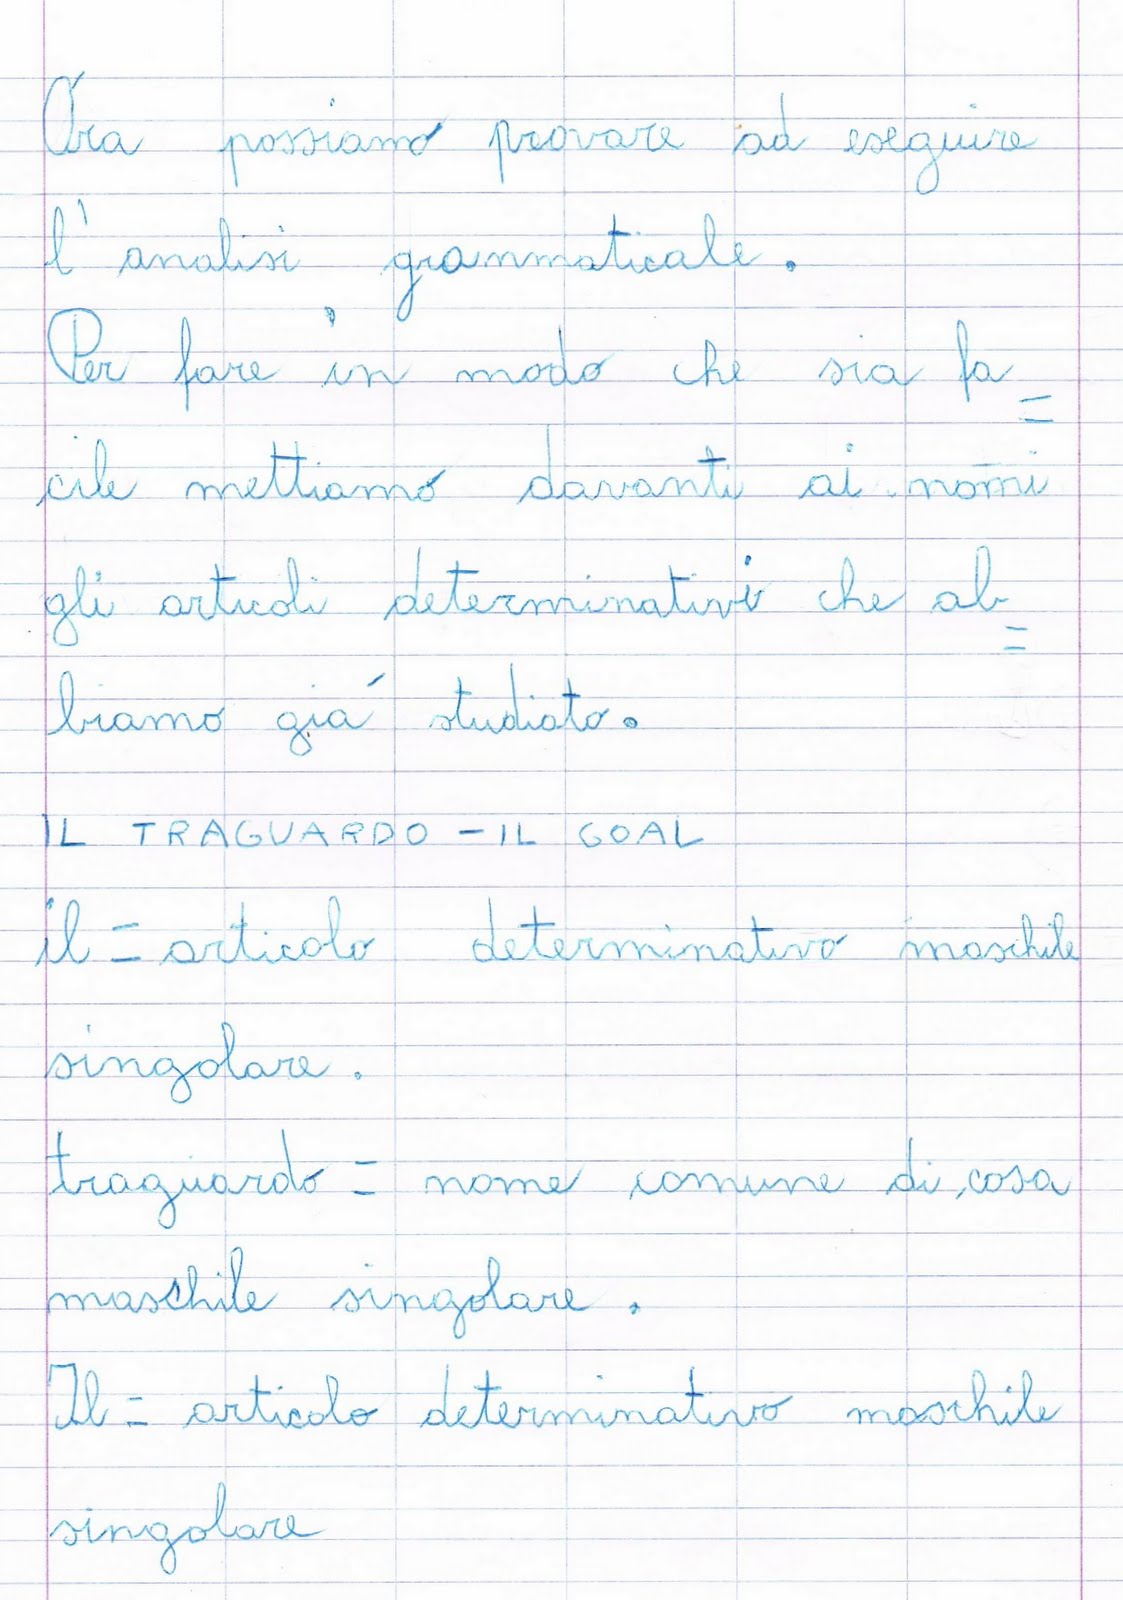 Ora possiamo provare ad eseguire
l'analisi grammaticale.
Per fare in modo che sia fa=
cile mettiamo davanti ai nomi
gli articoli determinativi che ab=
biamo giá studiato.
IL TRAGUARDO - IL GOAL
il = articolo determinativo maschile
singolare.
traguardo = nome comune di cosa
maschile singolare.
Il = articolo determinativo maschile
singolare